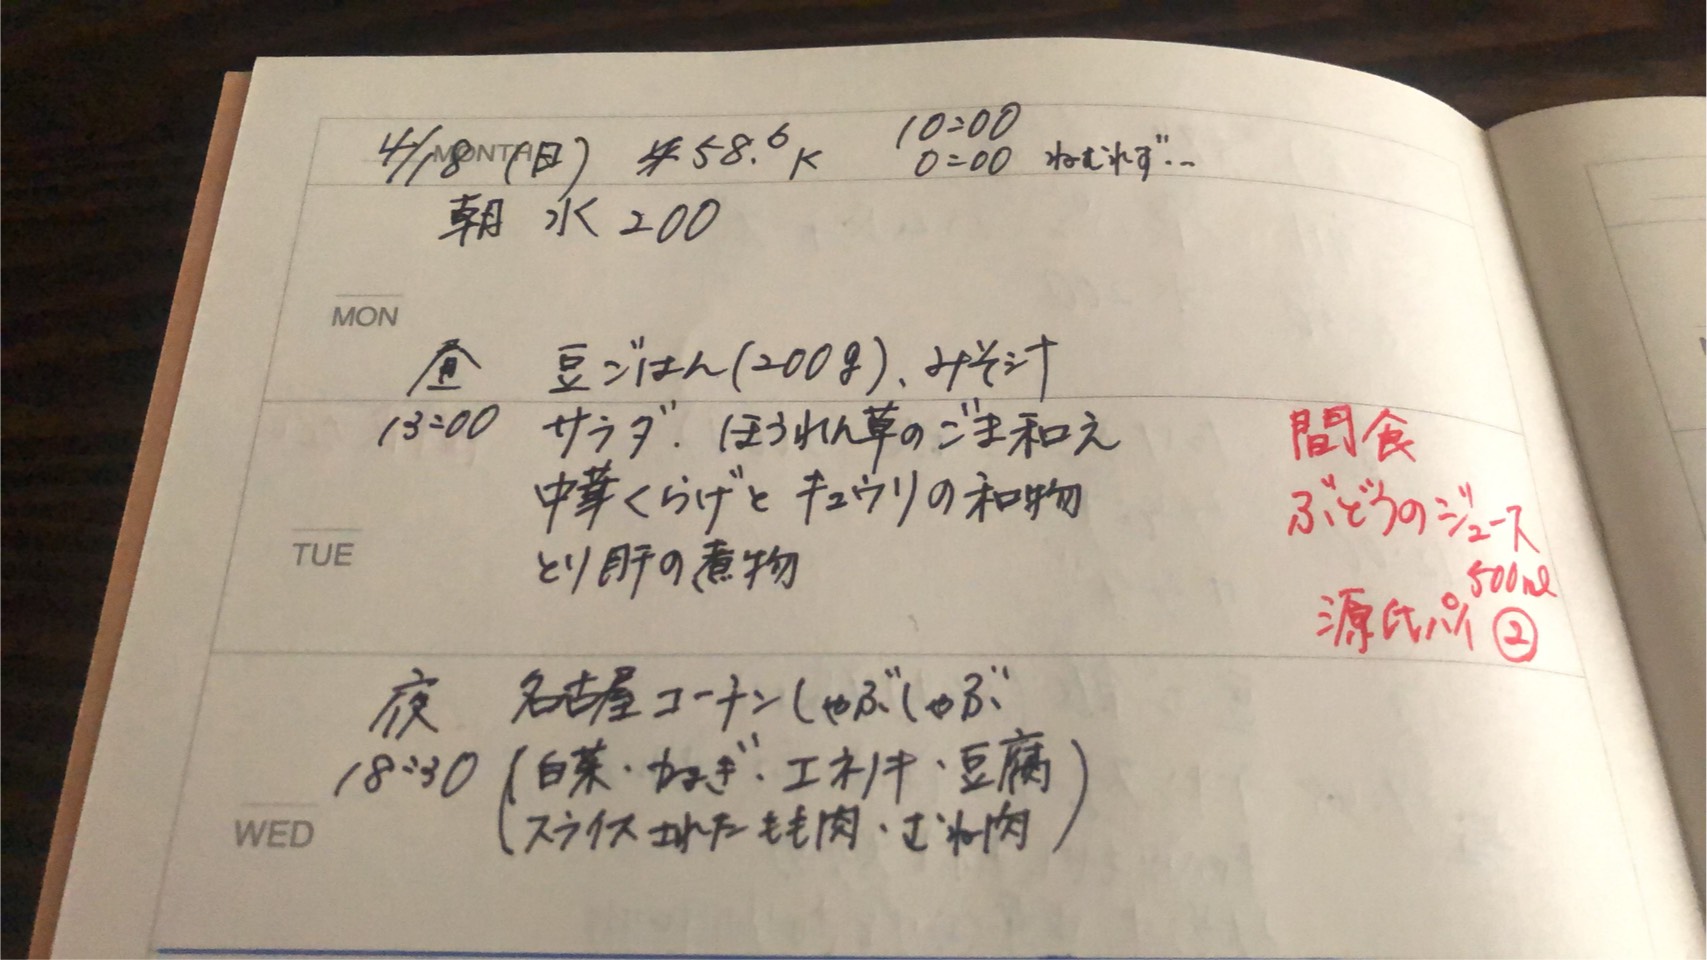 MONTH
4/18(日) 58.6K 10:00
0:00 ねむれず…
朝 水 200
MON
昼 豆ごはん(200g)、みそ汁
13:00 サラダ、ほうれん草のごま和え
中華くらげとキュウリの和物
とり肝の煮物
TUE
間食
ぶどうのジュース
500ml
源氏パイ②
夜 名古屋コーチンしゃぶしゃぶ
18:30 (白菜・ねぎ・エネノキ・豆腐
スライスされたもも肉・むね肉)
WED